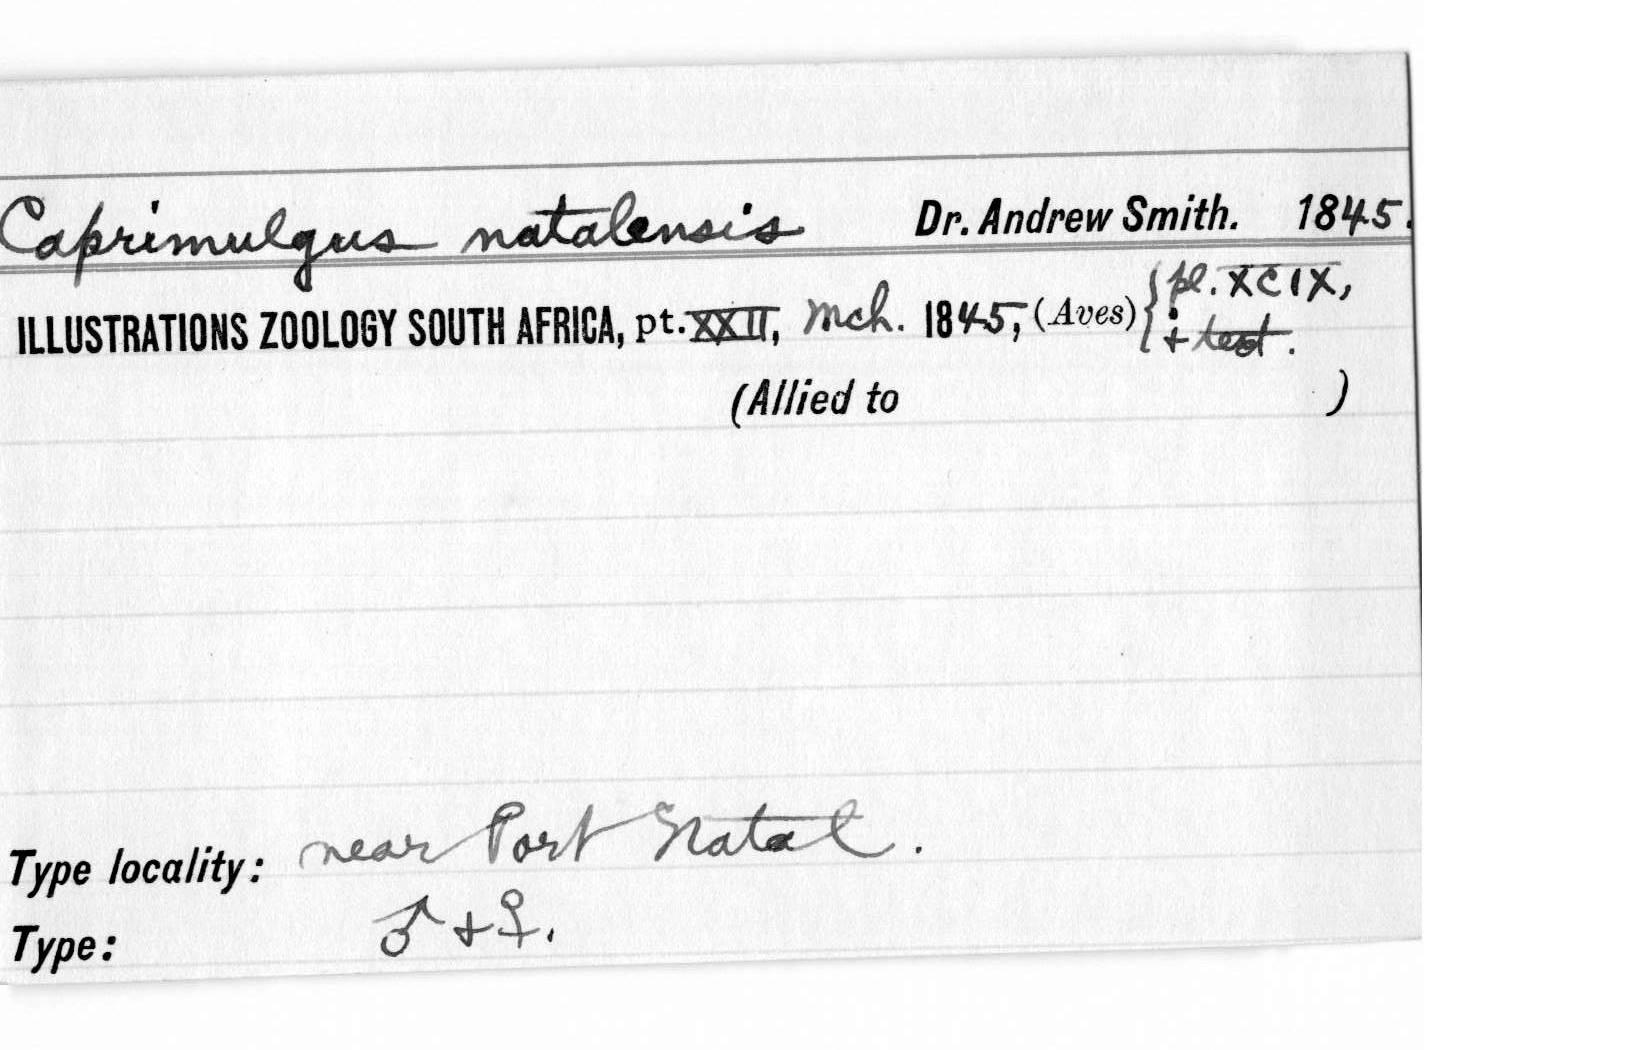 Caprimulgus natalensis Dr. Andrew Smith. 1845.
ILLUSTRATIONS ZOOLOGY SOUTH AFRICA, pt. XXII, Mch. 1845, (Aves) { pl. XCIX,
+ text.
(Allied to )
Type locality: near Port Natal.
Type: ♂ + ♀.